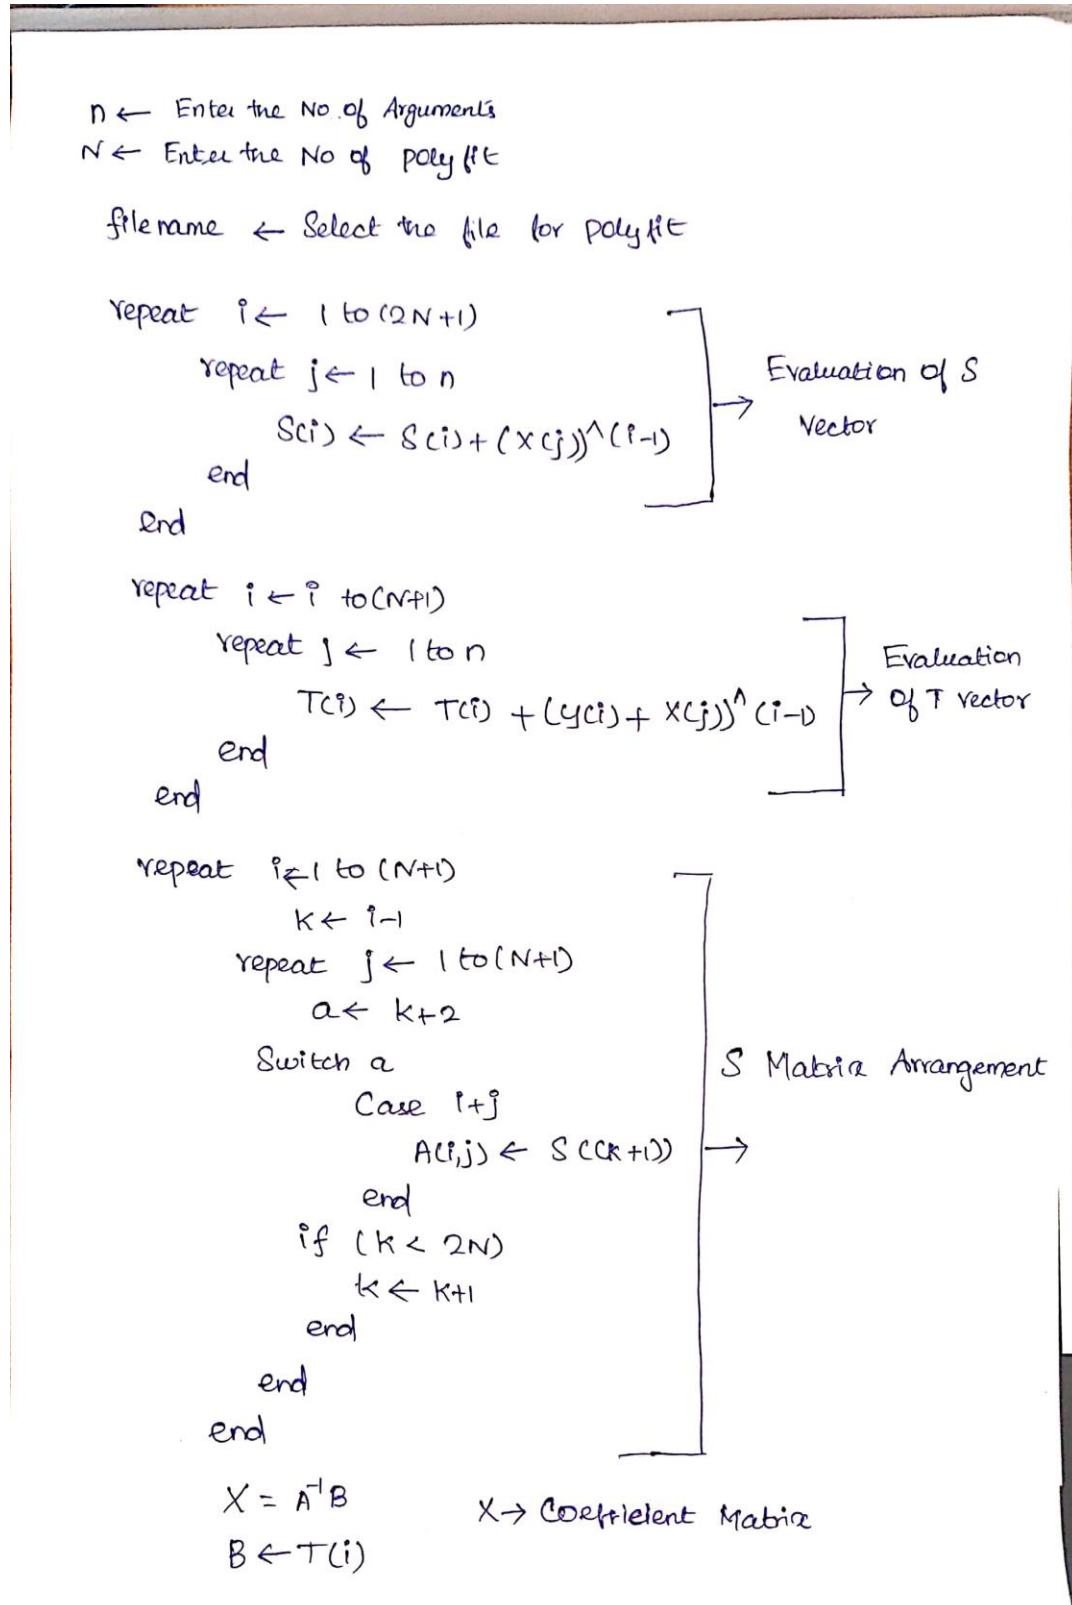 n ← Enter the No. of Arguments
N ← Enter the No of poly fit
filename ← Select the file for polyfit
repeat i ← 1 to (2N+1)
repeat j ← 1 to n
S(i) ← S(i) + (x(j))^(i-1)
end
end
Evaluation of S
Vector
repeat i ← i to (N+1)
repeat j ← 1 to n
T(i) ← T(i) + (y(i) + x(j))^(i-1)
end
end
Evaluation
of T vector
repeat i ← 1 to (N+1)
k ← i-1
repeat j ← 1 to (N+1)
a ← k+2
Switch a
Case i+j
A(i,j) ← S((k+1))
end
if (k < 2N)
k ← k+1
end
end
end
→ S Matrix Arrangement
X = A⁻¹B
X → Coefficient Matrix
B ← T(i)